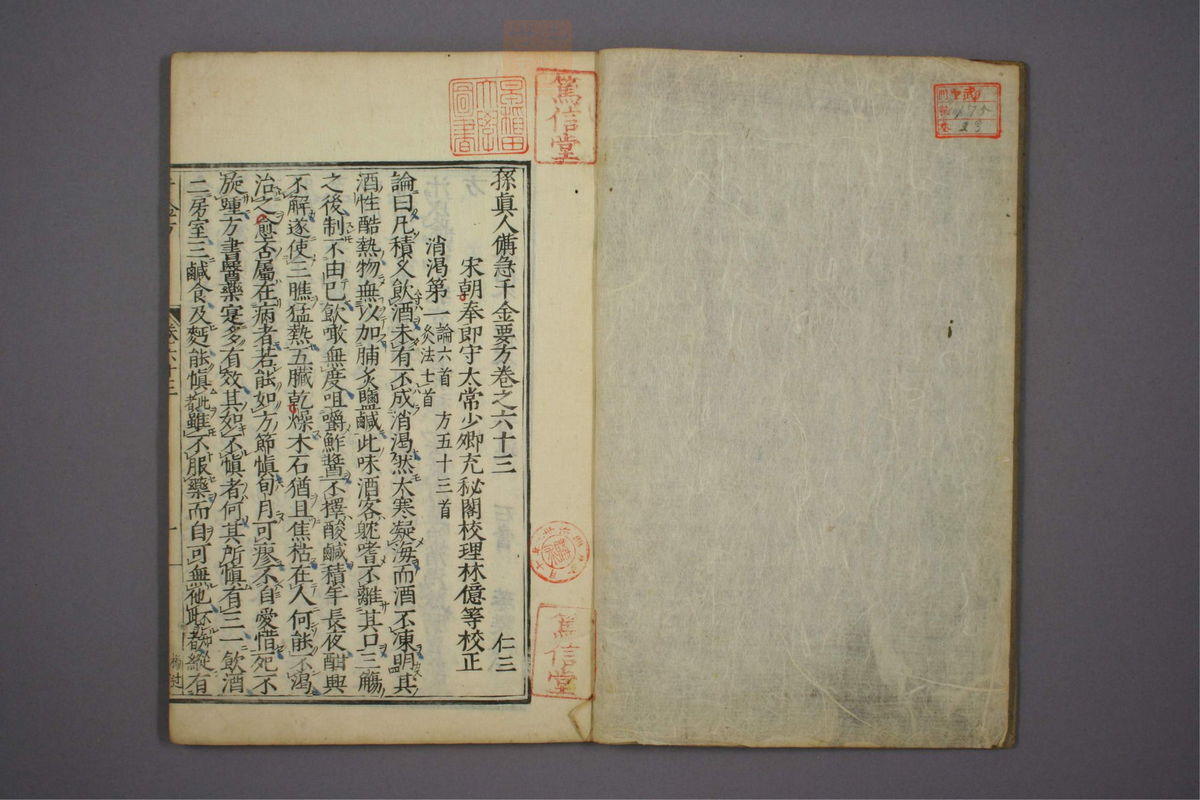 孫眞人備急千金要方卷之六十三
仁三
宋朝奉郎守太常少卿充秘閣校理林億等校正
消渇第一
論六首 方五十三首
灸法七首
論曰凡積久飲酒未有不成消渇然大寒凝海而酒不凍明其
酒性酷熱物無以加脯炙鹽鹹此味酒客躭嗜不離其口三觴
之後制不由已飲噉無度咀嚼鮓醬不擇酸鹹積年長夜酣興
不解遂使三膲猛熱五臟乾燥木石猶且焦枯在人何能不渇
治之愈否屬在病者若能如方節愼旬月可瘳不自愛惜死不
旋踵方書醫藥寔多有效其如不愼者何其所愼有三一飲酒
二房室三鹹食及麪能愼此者雖不服藥而自可無他不知此者縱有
篤信堂
篤信堂